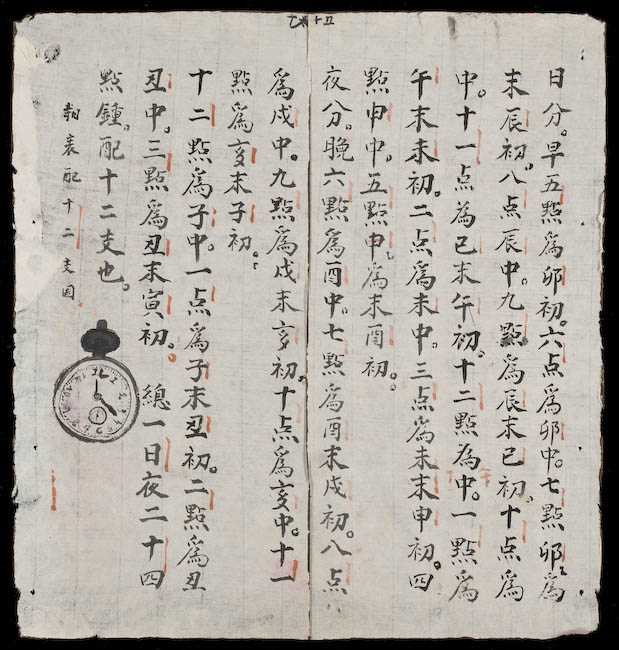 日分。早五點爲卯初。六点爲卯中。七點卯爲
末辰初。八点辰中。九點爲辰末巳初。十点爲
中。十一点為巳末午初。十二點為中。一點爲
午末未初。二点爲未中。三点爲未末申初。四
點申中。五點申爲末酉初。
夜分。晚六點爲酉中。七點爲酉末戌初。八点
爲戌中。九點爲戌末亥初。十点爲亥中。十一
點爲亥末子初。
十二點爲子中。一点爲子末丑初。二點爲丑
丑中。三點爲丑末寅初。 總一日夜二十四
點鍾。配十二支也。
配十二支